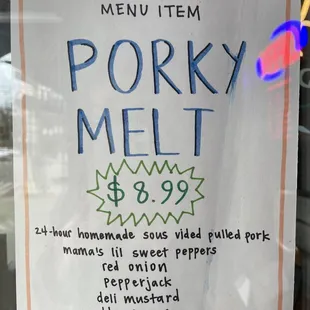 MENU ITEM
PORKY
MELT
$8.99
24-hour homemade sous vided pulled pork
mama's lil sweet peppers
red onion
pepperjack
deli mustard